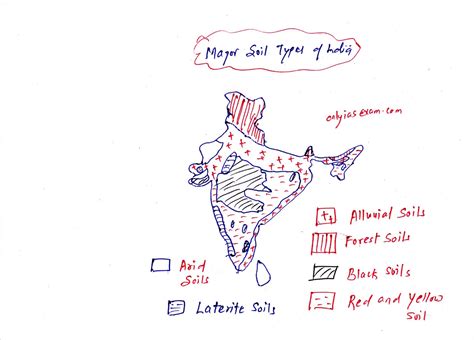 Major Soil Types of India
onlyiasexam.com
Alluvial Soils
Forest Soils
Black Soils
Red and Yellow
Soil
Arid
Soils
Laterite Soils